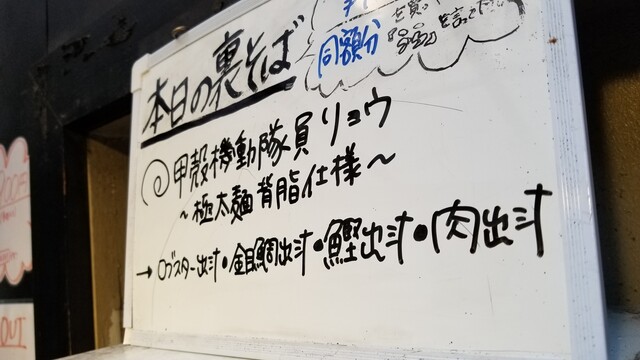 本日の裏そば
同額分
甲殻機動隊員リョウ
〜極太麺背脂仕様〜
→ロブスター出汁・金目鯛出汁・鰹出汁・肉出汁
OUT